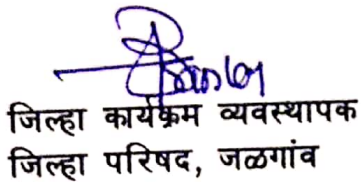 जिल्हा कार्यक्रम व्यवस्थापक
जिल्हा परिषद, जळगांव